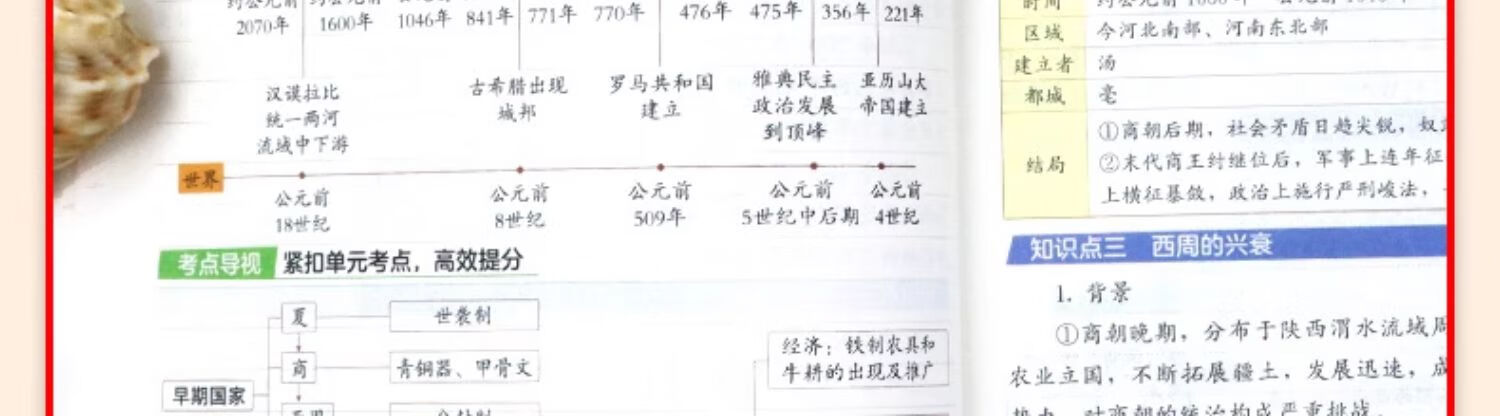 2070年 1600年 1046年 841年 771年 770年 476年 475年 356年 221年
汉谟拉比
统一两河
流域中下游
古希腊出现
城邦
罗马共和国
建立
雅典民主
政治发展
到顶峰
亚历山大
帝国建立
世界
公元前
18世纪
公元前
8世纪
公元前
509年
公元前
5世纪中后期
公元前
4世纪
考点导视 紧扣单元考点，高效提分
夏 世袭制
商 青铜器、甲骨文
早期国家
经济：铁制农具和
牛耕的出现及推广
区域 今河北南部、河南东北部
建立者 汤
都城 亳
结局
①商朝后期，社会矛盾日趋尖锐，
②末代商王纣继位后，军事上连年征
上横征暴敛，政治上施行严刑峻法，
知识点三 西周的兴衰
1. 背景
①商朝晚期，分布于陕西渭水流域周
农业立国，不断拓展疆土，发展迅速，